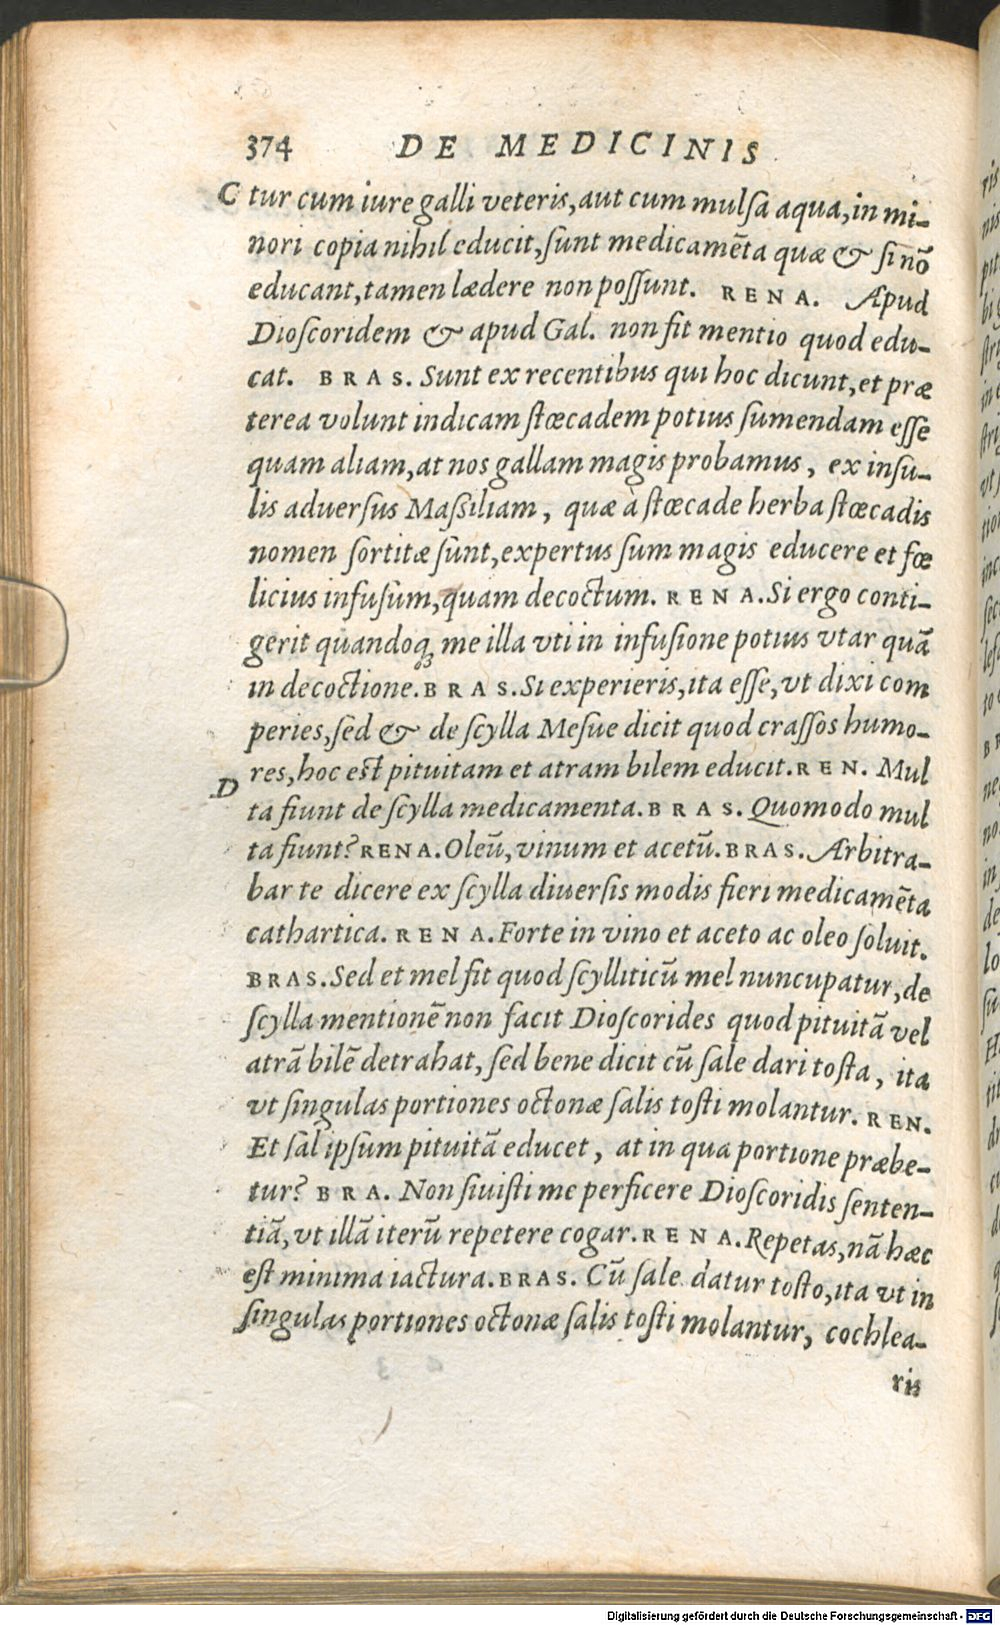 374 DE MEDICINIS
C tur cum iure galli veteris, aut cum mulſa aqua, in mi-
nori copia nihil educit, ſunt medicamēta quæ & ſi nō
educant, tamen lædere non poſſunt. RENA. Apud
Dioſcoridem & apud Gal. non fit mentio quod edu-
cat. BRAS. Sunt ex recentibus qui hoc dicunt, et præ
terea volunt indicam ſtœcadem potius ſumendam eſſe
quam aliam, at nos gallam magis probamus, ex inſu-
lis aduerſus Maſsiliam, quæ à ſtœcade herba ſtœcadis
nomen ſortitæ ſunt, expertus ſum magis educere et fœ
licius infuſum, quam decoctum. RENA. Si ergo conti-
gerit quandoq; me illa vti in infuſione potius vtar quā
in decoctione. BRAS. Si experieris, ita eſſe, vt dixi com
peries, ſed & de ſcylla Meſue dicit quod craſſos humo-
D res, hoc est pituitam et atram bilem educit. REN. Mul
ta fiunt de ſcylla medicamenta. BRAS. Quomodo mul
ta fiunt? RENA. Oleū, vinum et acetū. BRAS. Arbitra-
bar te dicere ex ſcylla diuerſis modis fieri medicamēta
cathartica. RENA. Forte in vino et aceto ac oleo ſoluit.
BRAS. Sed et mel fit quod ſcylliticū mel nuncupatur, de
ſcylla mentionē non facit Dioſcorides quod pituitā vel
atrā bilē detrahat, ſed bene dicit cū ſale dari toſta, ita
vt ſingulas portiones octonæ ſalis toſti molantur. REN.
Et ſal ipſum pituitā educet, at in qua portione præbe-
tur? BRA. Non ſiuiſti me perficere Dioſcoridis ſenten-
tiā, vt illā iterū repetere cogar. RENA. Repetas, nā hæc
eſt minima iactura. BRAS. Cū ſale datur toſto, ita vt in
ſingulas portiones octonæ ſalis toſti molantur, cochlea-
ris
Digitalisierung gefördert durch die Deutsche Forschungsgemeinschaft - DFG